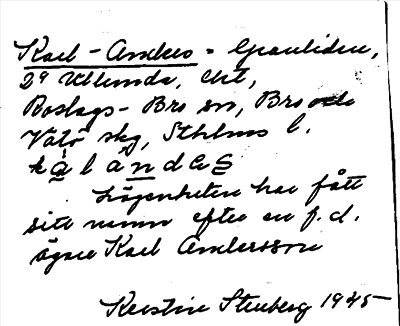 Karl-Anders = Granliden,
2ª Ullunda, lht,
Roslags-Bro sn, Bro och
Vätö skg, Sthlms l.
kạ̀lạndas
Lägenheten har fått
sitt namn efter en f.d.
ägare Karl Andersson
Kerstin Stenberg 1945